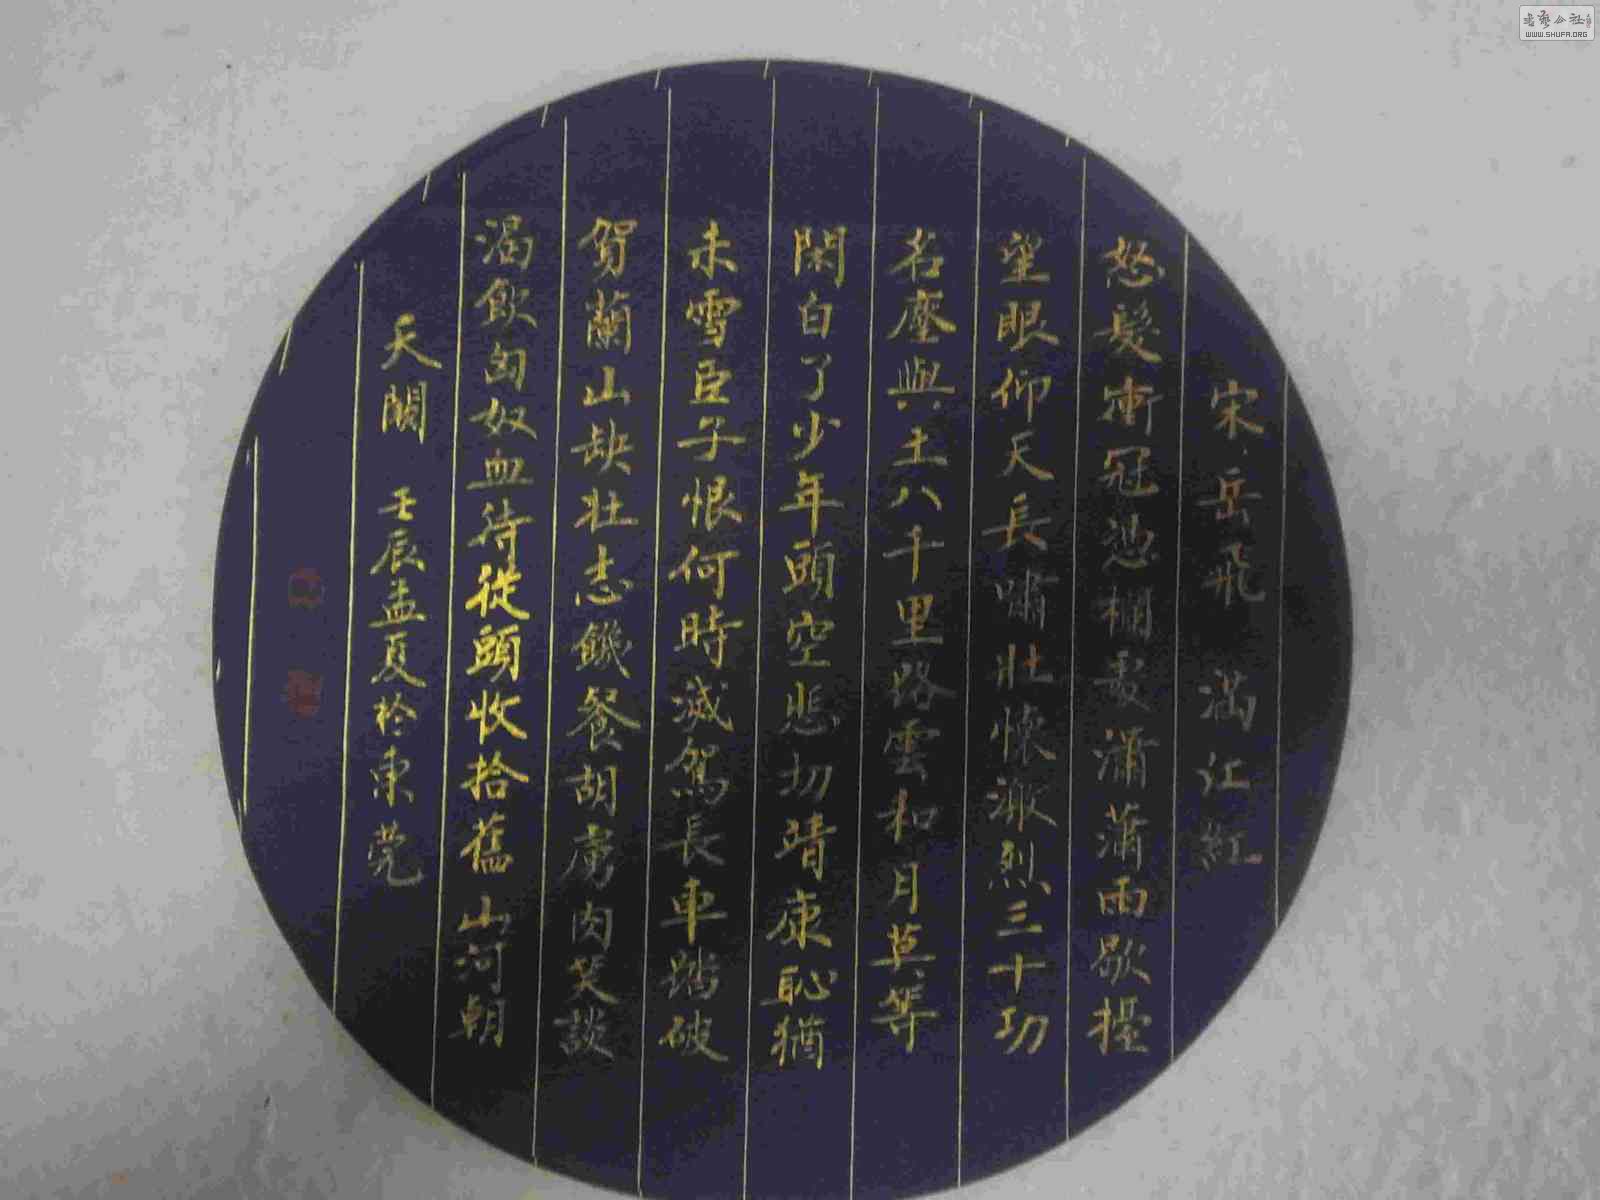 宋岳飛 滿江紅
怒髮衝冠憑欄處瀟瀟雨歇擡
望眼仰天長嘯壯懷激烈三十功
名塵與土八千里路雲和月莫等
閑白了少年頭空悲切靖康恥猶
未雪臣子恨何時滅駕長車踏破
賀蘭山缺壯志饑餐胡虜肉笑談
渴飲匈奴血待從頭收拾舊山河朝
天闕 壬辰孟夏於東莞
WWW.SHUFA.ORG